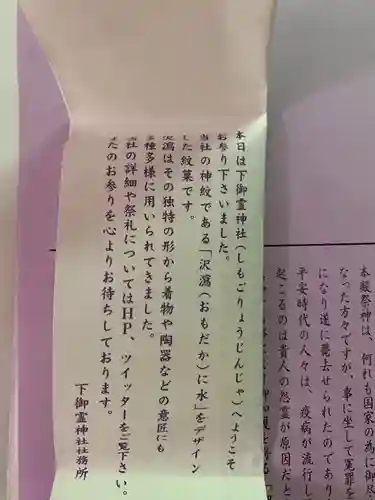 本日は下御霊神社(しもごりょうじんじゃ)へようこそ
お参り下さいました。
当社の神紋である「沢瀉(おもだか)に水」をデザイン
した紋菓です。
沢瀉はその独特の形から着物や陶器などの意匠にも
多種多様に用いられてきました。
当社の詳細や祭礼についてはHP、ツイッターをご覧下さい。
またのお参りを心よりお待ちしております。
下御霊神社社務所
本殿祭神は、何れも国家の為に御尽
なった方々ですが、事に坐して冤罪を
になり遂に薨去せられたのであり
平安時代の人々は、疫病が流行し
起こるのは貴人の怨霊が原因だと